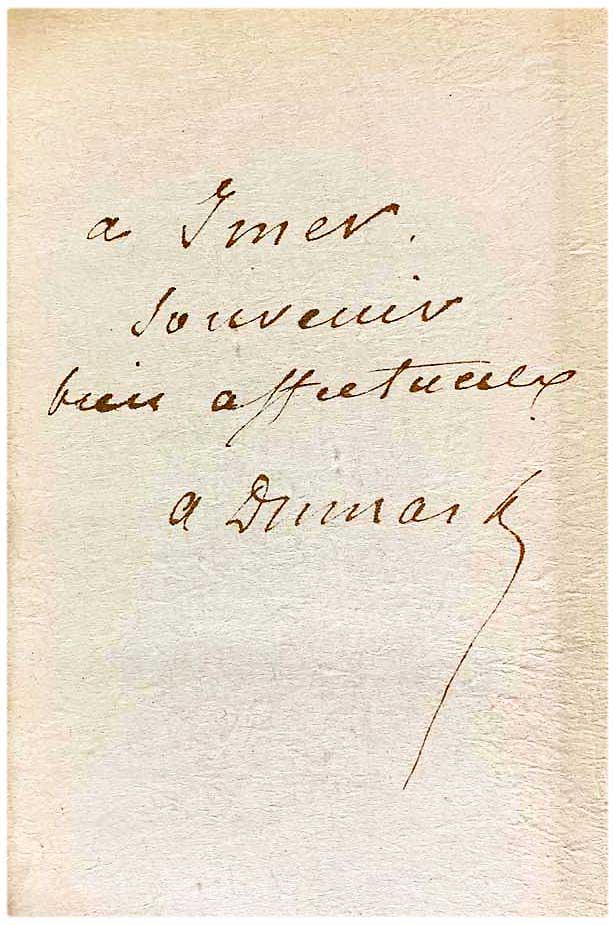 a Imer.
souvenir
bien affectueux
a Dumas f